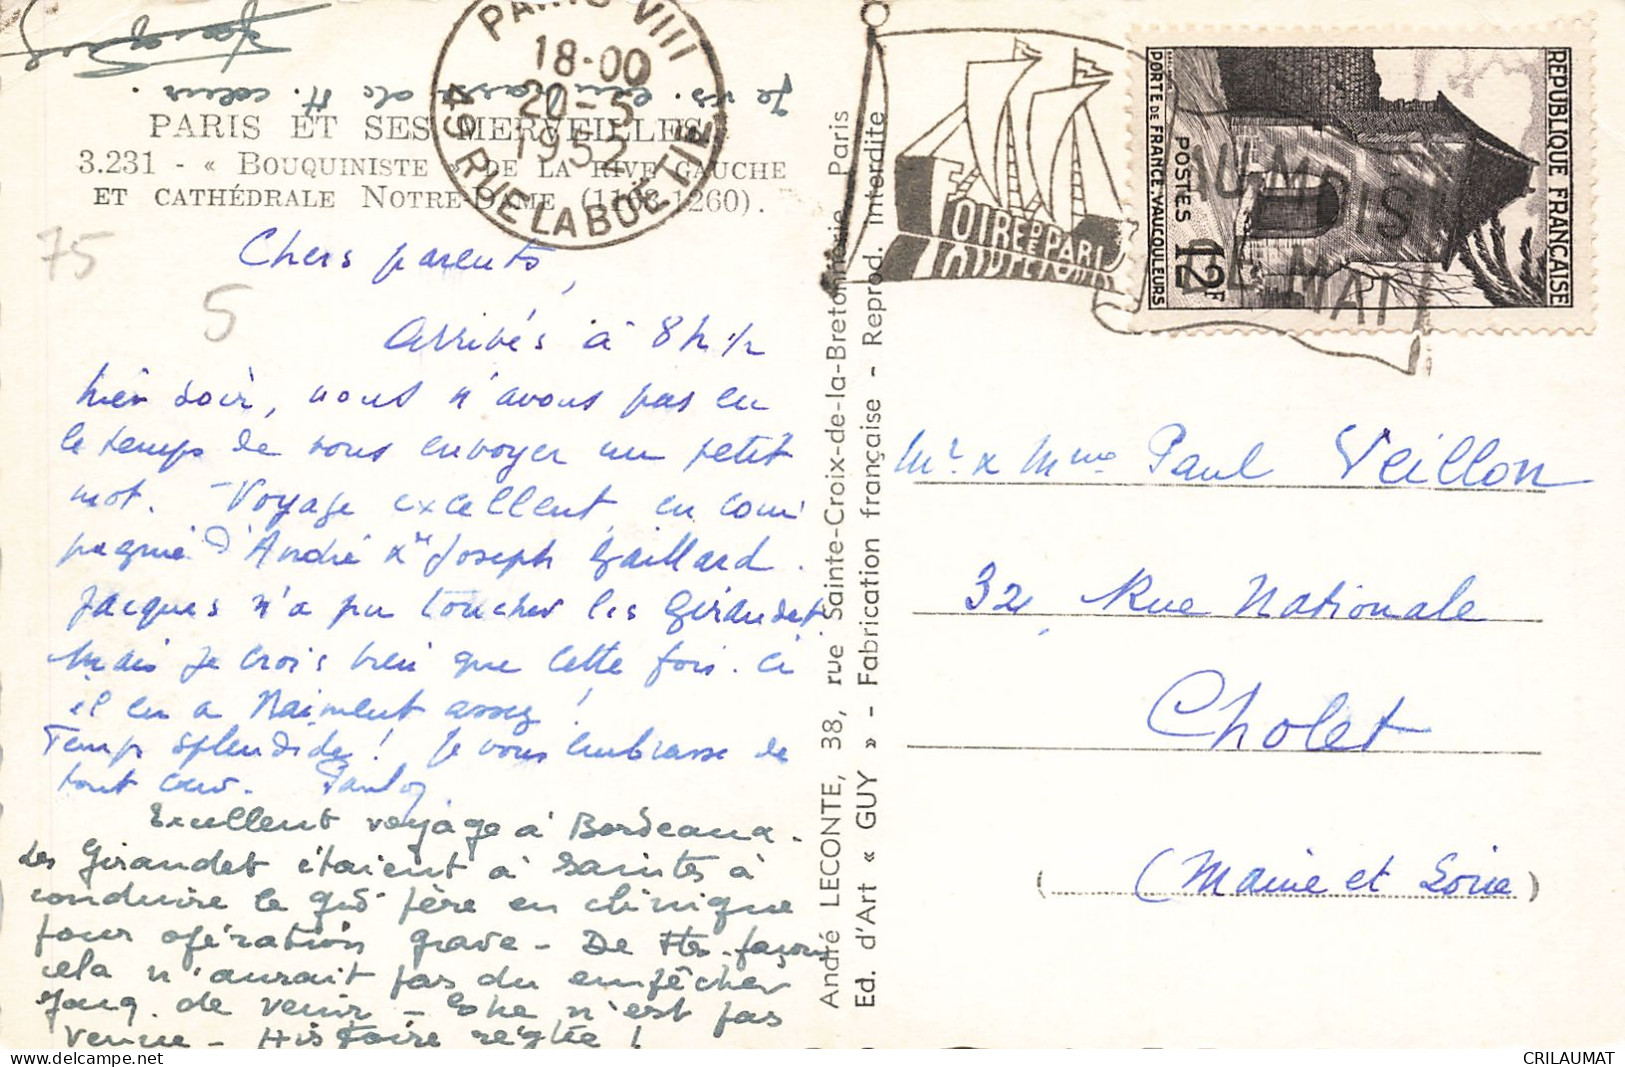 Je vs. embrasse de tt. cœur.
PARIS ET SES MERVEILLES
3.231 - « BOUQUINISTE » DE LA RIVE GAUCHE
ET CATHÉDRALE NOTRE-DAME (1163-1260).
PARIS VIII
18-00
20-5
1952
49 RUE LA BOETIE
FOIRE DE PARIS
AU MOIS
DE MAI
REPUBLIQUE FRANÇAISE
POSTES 12F
PORTE DE FRANCE. VAUCOULEURS
75
5
Chers parents,
Arrivés à 8h 1/2
hier soir, nous n'avons pas eu
le temps de vous envoyer un petit
mot. - Voyage excellent, en com
pagnie d'André & Joseph Gaillard.
Jacques n'a pu toucher les Girandet.
Mais je crois bien que cette fois-ci
il en a vraiment assez!
Temps splendide! Je vous embrasse de
tout cœur.
Excellent voyage à Bordeaux.
Les Girandet étaient à Saintes à
conduire le gd père en clinique
pour opération grave - De ttes façons
cela n'aurait pas du empêcher
Jacq. de venir - n'est pas
venue - Histoire réglée!
André LECONTE, 38, rue Sainte-Croix-de-la-Bretonnerie Paris
Ed. d'Art « GUY » - Fabrication française - Reprod. Interdite
Mr & Mme Paul Veillon
32, Rue Nationale
Cholet
(Maine et Loire)
delcampe.net
CRILAUMAT